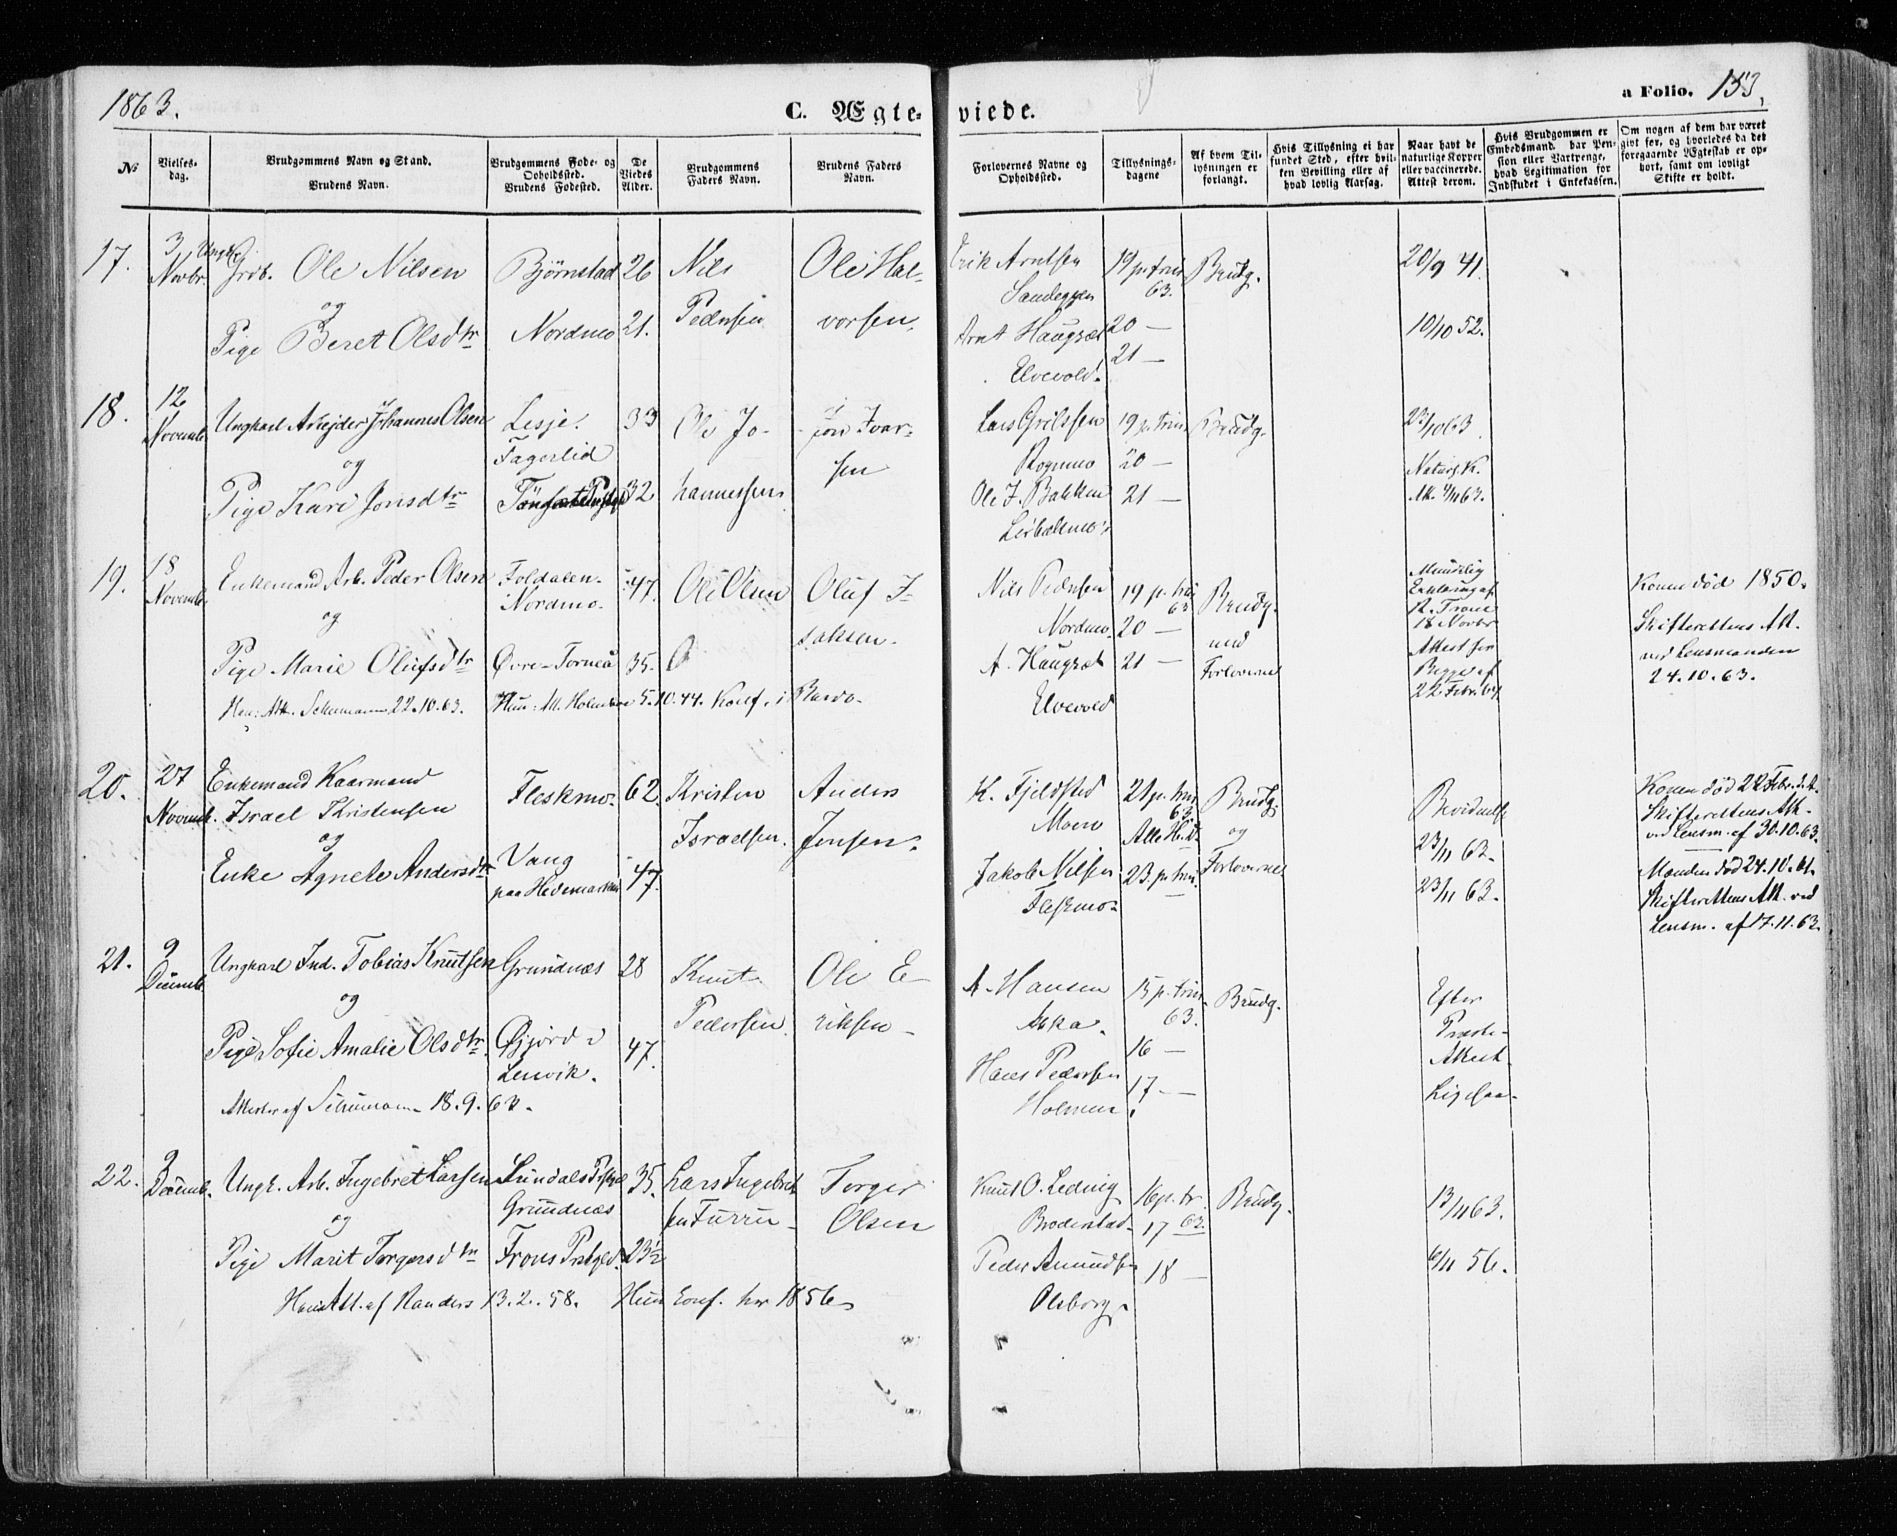 1863.
C. Ægteviede.
a Folio. 153.
No
Vielsesdag.
Brudgommens Navn og Stand.
Brudens Navn.
Brudgommens Føde- og Opholdssted.
Brudens Fødested.
De Viedes Alder.
Brudgommens Faders Navn.
Brudens Faders Navn.
Forlovernes Navne og Opholdssted.
Tillysningsdagene
Af hvem Tillysningen er forlangt.
Hvis Tillysning ei har fundet Sted, efter hvilken Bevilling eller af hvad lovlig Aarsag.
Naar havt de naturlige Kopper eller vaccinerede. Attest derom.
Hvis Brudgommen er Embedsmand, har Pension eller Vartpenge, hvad Legitimation for Indskudet i Enkekassen.
Om nogen af dem har været givt før, og hvorledes da det foregaaende Ægteskab er ophørt, samt om lovligt Skifte er holdt.
17. 3 Novbr. Ungk. Ole Nilsen Bjørnstad 26 Nils Pedersen Ole Halvorsen
og
Pige Beret Olsdtr Nordmo 21.
Erik Arntsen Sandeggen 19 p. trin 63. Brudg. 20/9 41.
Arnt Haugset Elvevold. 20 — 21 — 10/10 52.
18. 12 Novemb. Ungkarl Arbejder Johannes Olsen Lesje. Fagerlid 33 Ole Johannessen Jon Ivarsen
og
Pige Kari Jonsdtr 32
Lars Rognmo 19 p. trin Brudg.
20 — Naturl. K.
Ole J. Bakken 21 —
19. 18 Novemb. Enkemand Arb. Peder Olsen Foldalen. Nordmo. 47. Ole Olsen Oluf Isaksen.
og
Pige Marie Olufsdtr Øvre-Torneå 35.
Han: Att. Schumann 22.10.63. Hun: Att. 5.10.44. Konf. i Bardo.
Nils Pedersen Nordmo. 19 p. trin 63 Brudg. med Forloverne
20 —
A. Haugset Elvevold 21 —
Mundtlig Erklæring af 18 Novbr
Attest for Begge af
Konen død 1850.
Skifterettens Att. ved Lensmanden 24.10.63.
20. 27 Novemb. Enkemand Kaarmand Israel Kristensen Fleskmo. 62 Kristen Israelsen. Anders Jensen.
og
Enke Agnete Andersdtr Vang paa Hedemarken 47.
K. Fjeldsted Moen 21 p. trin 63 Brudg. og Forloverne
Jakob Nilsen Fleskmo. 23. p. trin.
23/11 63.
23/11 63.
Konen død 22 Febr.
Skifterettens Att. ved Lensm. af 30.10.63.
Manden død 24.10.61.
Skifterettens Att. ved Lensm. af 17.11.63.
21. 9 Decemb. Ungkarl Ind. Tobias Knutsen Grundnæs 28 Knut Pedersen. Ole Eriksen
og
Pige Sofie Amalie Olsdtr. Lenvik. 47.
Attester af Schumann 18.9.63.
A. Hansen 15 p. trin. 63. Brudg. Efter Præste-Attest
16 —
Hans Pedersen Holmen. 17 — Ligesaa.
22. 9 Decemb. Ungk. Arb. Ingebret Larsen Grundnæs 35. Lars Ingebretsen Torger Olsen
og
Pige Marit Torgersdtr Frons Prstgjeld. 23½
Han Att. af Randers 13.2.58. Hun conf. her 1856
Knut O. 16 p. tr. Brudg. 13/11 63.
17 63.
Peder Amundsen Olsborg. 18 — 6/11 56.